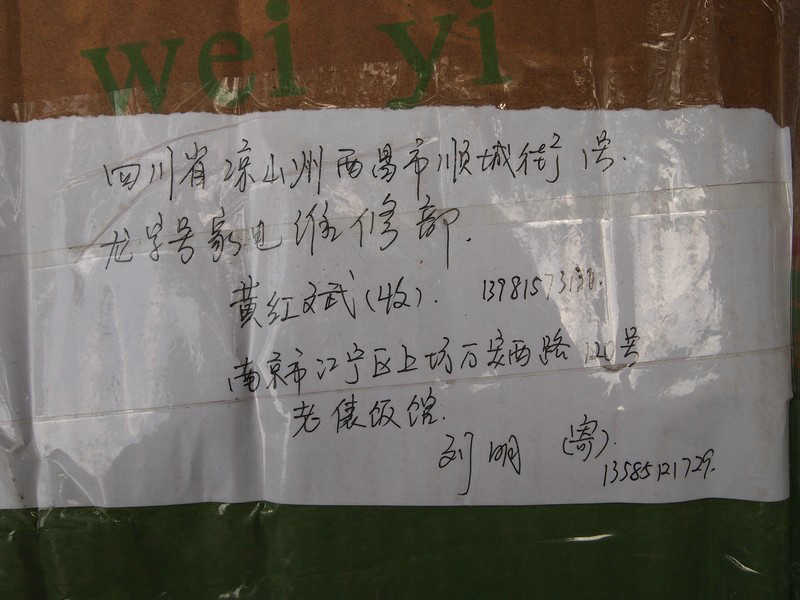 wei yi
四川省凉山州西昌市顺城街2 1号.
龙字号家电维修部.
黄红斌(收). 13981573130.
南京市江宁区上坊万安西路120号
老俵饭馆.
刘明 (寄).
13585121729.